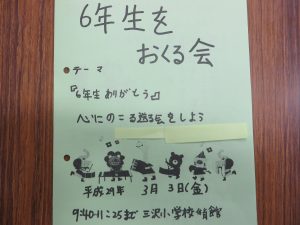 6年生を
おくる会
テーマ
『6年生ありがとう』
心にのこる 会をしよう
平成29年 3月 3日(金)
9:40-11:25まで 三沢小学校 館